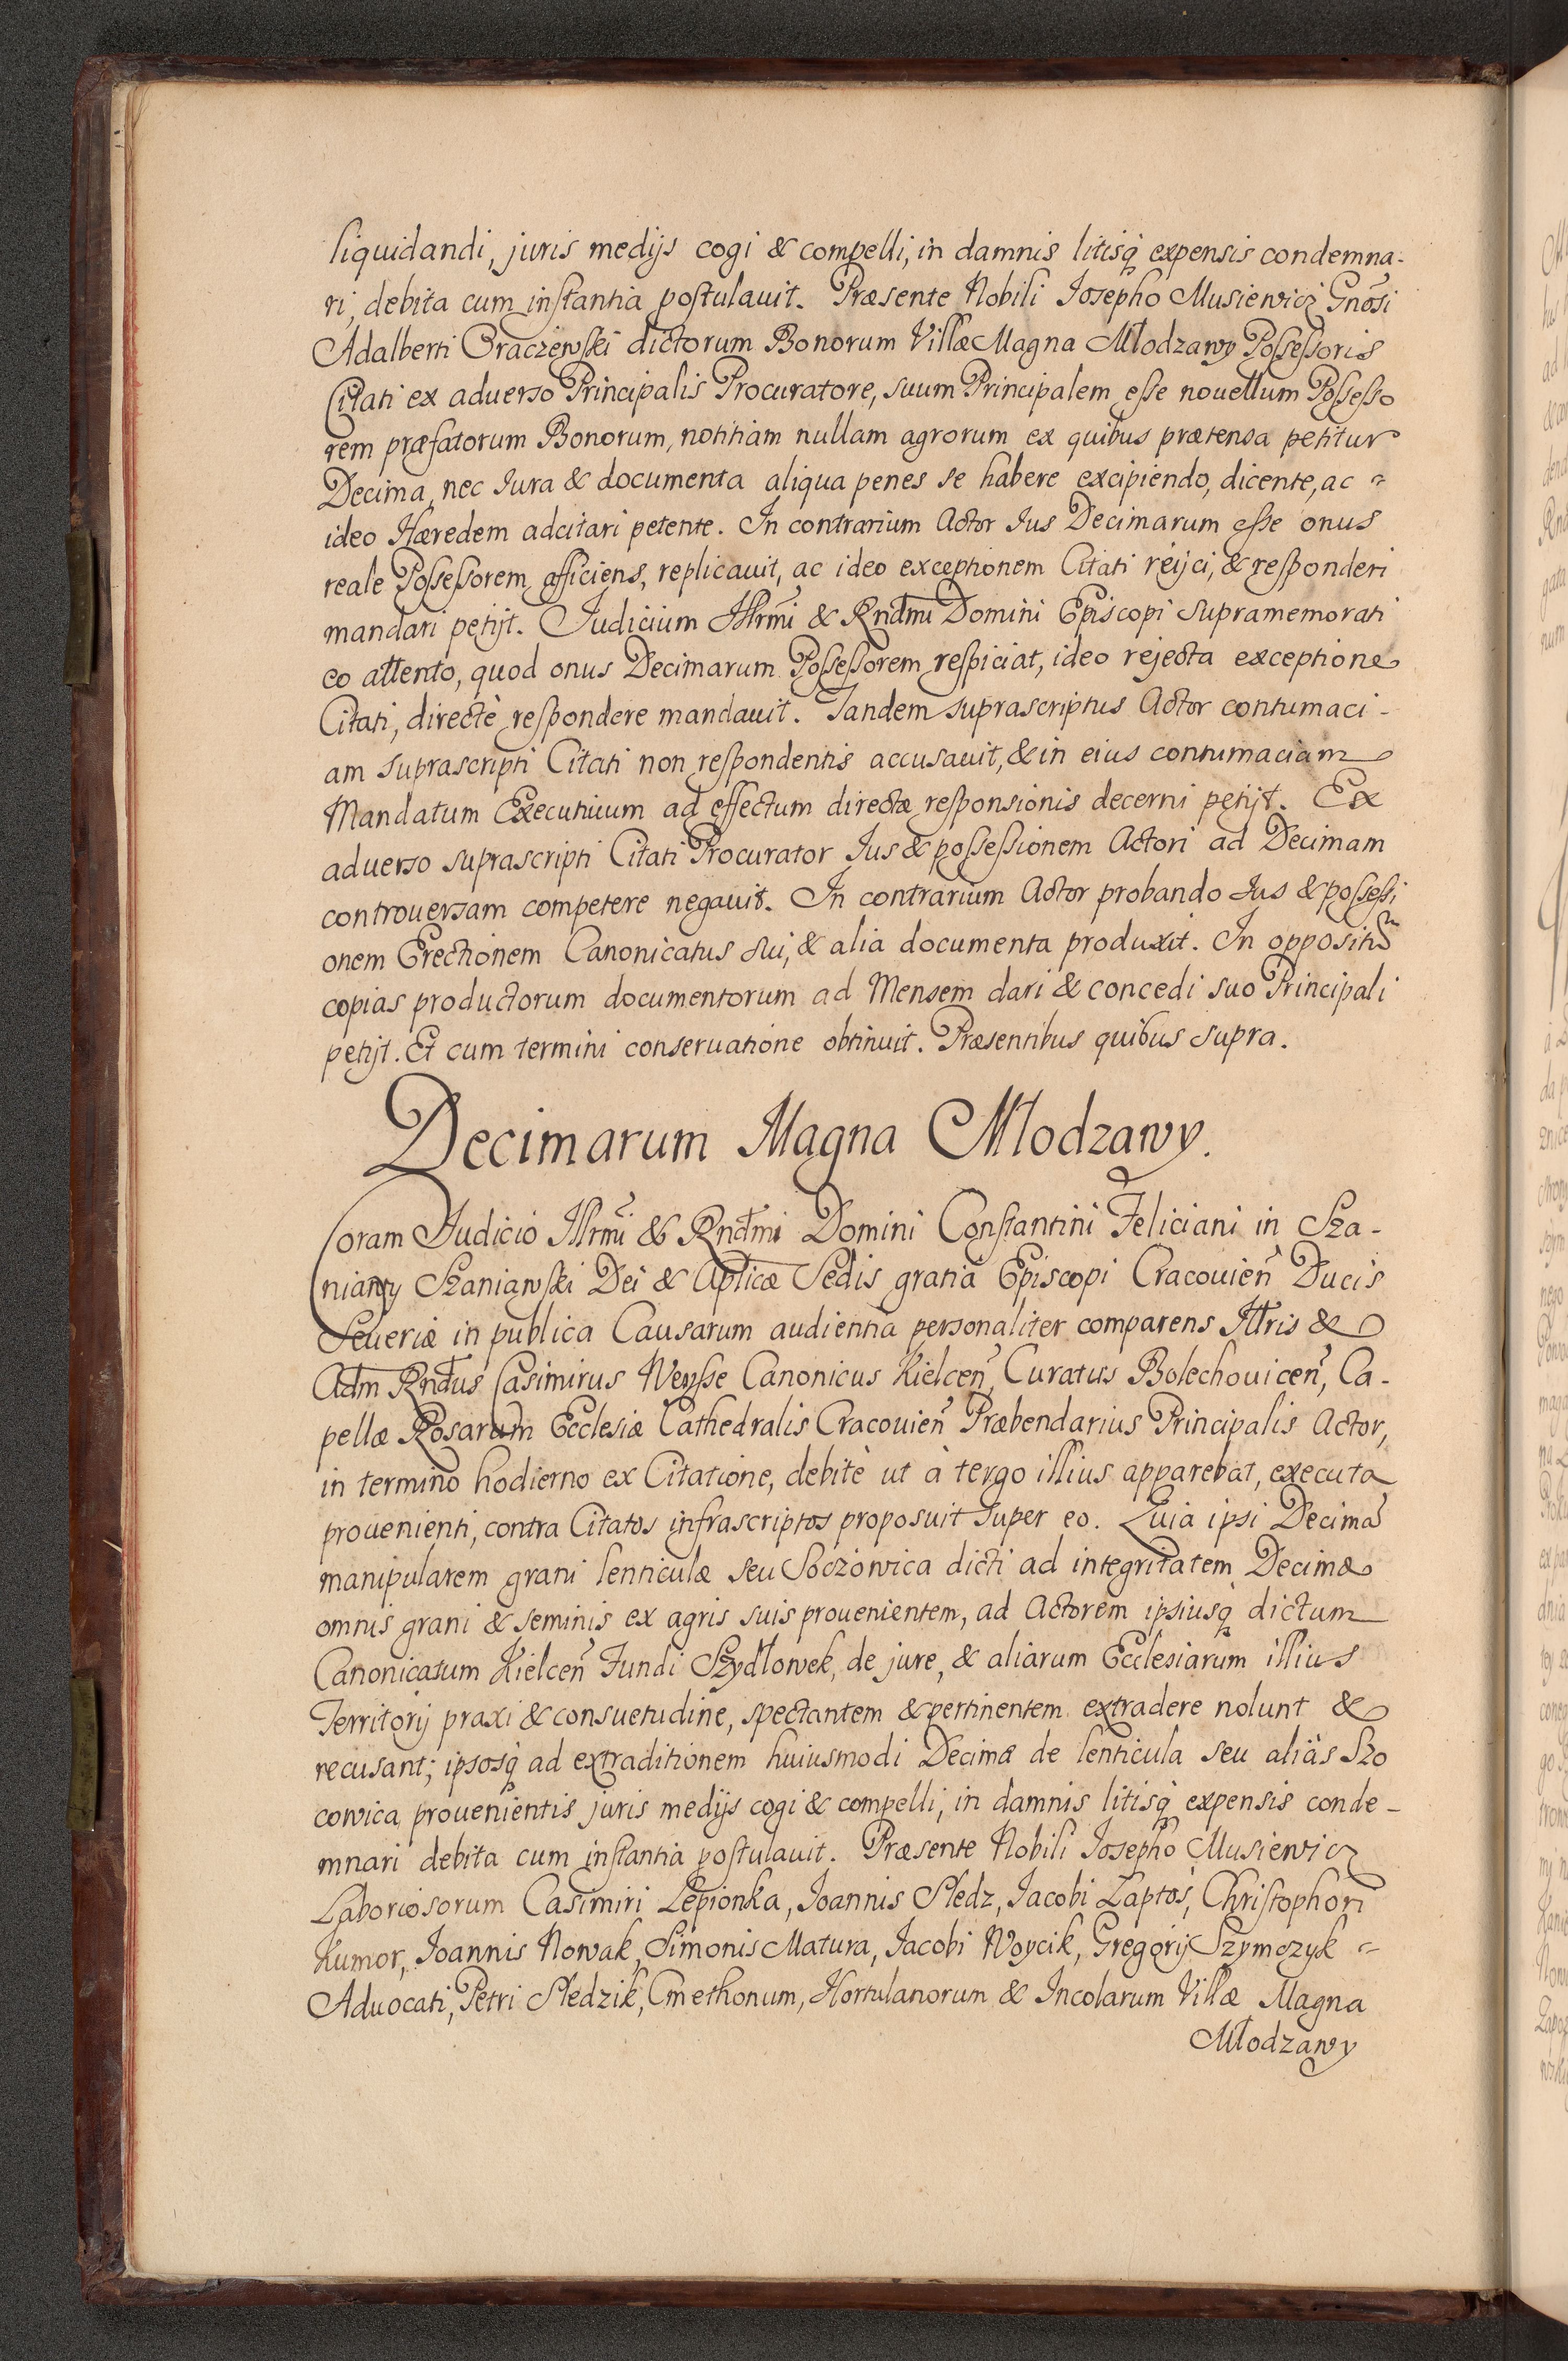 liquidandi, juris medijs cogi & compelli, in damnis litisq́ expensis condemna-
ri, debita cum inſtantia poſtulauit. Præsente Nobili Iosepho Musiewicz Gnôsi
Adalberti Braczewſki dictorum Bonorum Villæ Magna Młodzawy Poſseſsoris
Citati ex aduerso Principalis Procuratore, suum Principalem eſse nouellum Poſseſso
rem præfatorum Bonorum, notitiam nullam agrorum ex quibus prætensa petitur
Decima, nec Iura & documenta aliqua penes se habere excipiendo, dicente, ac =
ideo Hæredem adcitari petente. In contrarium Actor Ius Decimarum eſse onus
reale Poſseſsorem afficiens, replicauit, ac ideo exceptionem Citati reijci, & reſponderi
mandari petijt. Judicium Illrmi & Rndmi Domini Episcopi supramemorati
eo attento, quod onus Decimarum Poſseſsorem reſpiciat, ideo rejecta exceptione
Citati, directè reſpondere mandauit. Tandem suprascriptus Actor contumaci-
am suprascripti Citati non reſpondentis accusauit, & in eius contumaciam
Mandatum Executiuum ad effectum directæ reſponsionis decerni petijt. Ex
aduerso suprascripti Citati Procurator Ius & poſseſsionem Actori ad Decimam
controuersam competere negauit. In contrarium Actor probando Ius & poſseſsi
onem Erectionem Canonicatus sui, & alia documenta produxit. In oppositũ
copias productorum documentorum ad Mensem dari & concedi suo Principali
petijt. Et cum termini conseruatione obtinuit. Præsentibus quibus supra.
Decimarum Magna Młodzawy.
Coram Judicio Illrmi & Rndmi Domini Conſtantini Feliciani in Sza-
niawy Szaniawſki Dei & Aplicæ Sedis gratia Episcopi Cracouień Ducis
Seueriæ in publica Causarum audientia personaliter comparens Illris &
Adm Rndus Casimirus Weyſse Canonicus Kielceń, Curatus Bolechouiceń, Ca-
pellæ Rosarum Ecclesiæ Cathedralis Cracouień Præbendarius Principalis Actor,
in termino hodierno ex Citatione, debitè ut à tergo illius apparebat, executa
prouenienti, contra Citatos infrascriptos proposuit super eo. Quia ipsi Decimã
manipularem grani lenticulæ seu Soczowica dicti ad integritatem Decimæ
omnis grani & seminis ex agris suis prouenientem, ad Actorem ipsiusq́ dictum
Canonicatum Kielceń Fundi Szydłowek, de jure, & aliarum Ecclesiarum illius
Territorij praxi & consuetudine, spectantem & pertinentem extradere nolunt &
recusant; ipsosq́ ad extraditionem huiusmodi Decimæ de lenticula seu aliàs Szo
cowica prouenientis juris medijs cogi & compelli, in damnis litisq́ expensis conde-
mnari debita cum inſtantia poſtulauit. Præsente Nobili Josepho Musiewicz
Laboriosorum Casimiri Lepionka, Joannis Sledz, Jacobi Laptos, Chriſtophori
Kumor, Joannis Nowak, Simonis Matura, Jacobi Woycik, Gregorij Szymczyk =
Aduocati, Petri Sledzik, Cmethonum, Hortulanorum & Incolarum Villæ Magna
Młodzawy